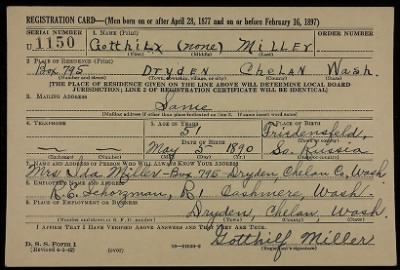 REGISTRATION CARD—(Men born on or after April 28, 1877 and on or before February 16, 1897)
SERIAL NUMBER 1. NAME (Print) ORDER NUMBER
U 1150 Gotthilf (none) Miller
2. PLACE OF RESIDENCE (Print)
Box 795 Dryden Chelan Wash.
(Number and street) (Town, township, village, or city) (County) (State)
[THE PLACE OF RESIDENCE GIVEN ON THE LINE ABOVE WILL DETERMINE LOCAL BOARD
JURISDICTION; LINE 2 OF REGISTRATION CERTIFICATE WILL BE IDENTICAL]
3. MAILING ADDRESS
Same
[Mailing address if other than place indicated on line 2. If same insert word same]
4. TELEPHONE 5. AGE IN YEARS 6. PLACE OF BIRTH
51 Friedensfeld,
DATE OF BIRTH (Town or county)
May 5 1890 So. Russia
(Exchange) (Number) (Mo.) (Day) (Yr.) (State or country)
7. NAME AND ADDRESS OF PERSON WHO WILL ALWAYS KNOW YOUR ADDRESS
Mrs Ida Miller - Box 795 - Dryden, Chelan Co, Wash
8. EMPLOYER'S NAME AND ADDRESS
R 1 Cashmere, Wash.
9. PLACE OF EMPLOYMENT OR BUSINESS
Dryden, Chelan, Wash.
(Number and street or R. F. D. number) (Town) (County) (State)
I AFFIRM THAT I HAVE VERIFIED ABOVE ANSWERS AND THAT THEY ARE TRUE.
D. S. S. Form 1
(Revised 4-1-42) (over)
Gotthilf Miller
(Registrant's signature)